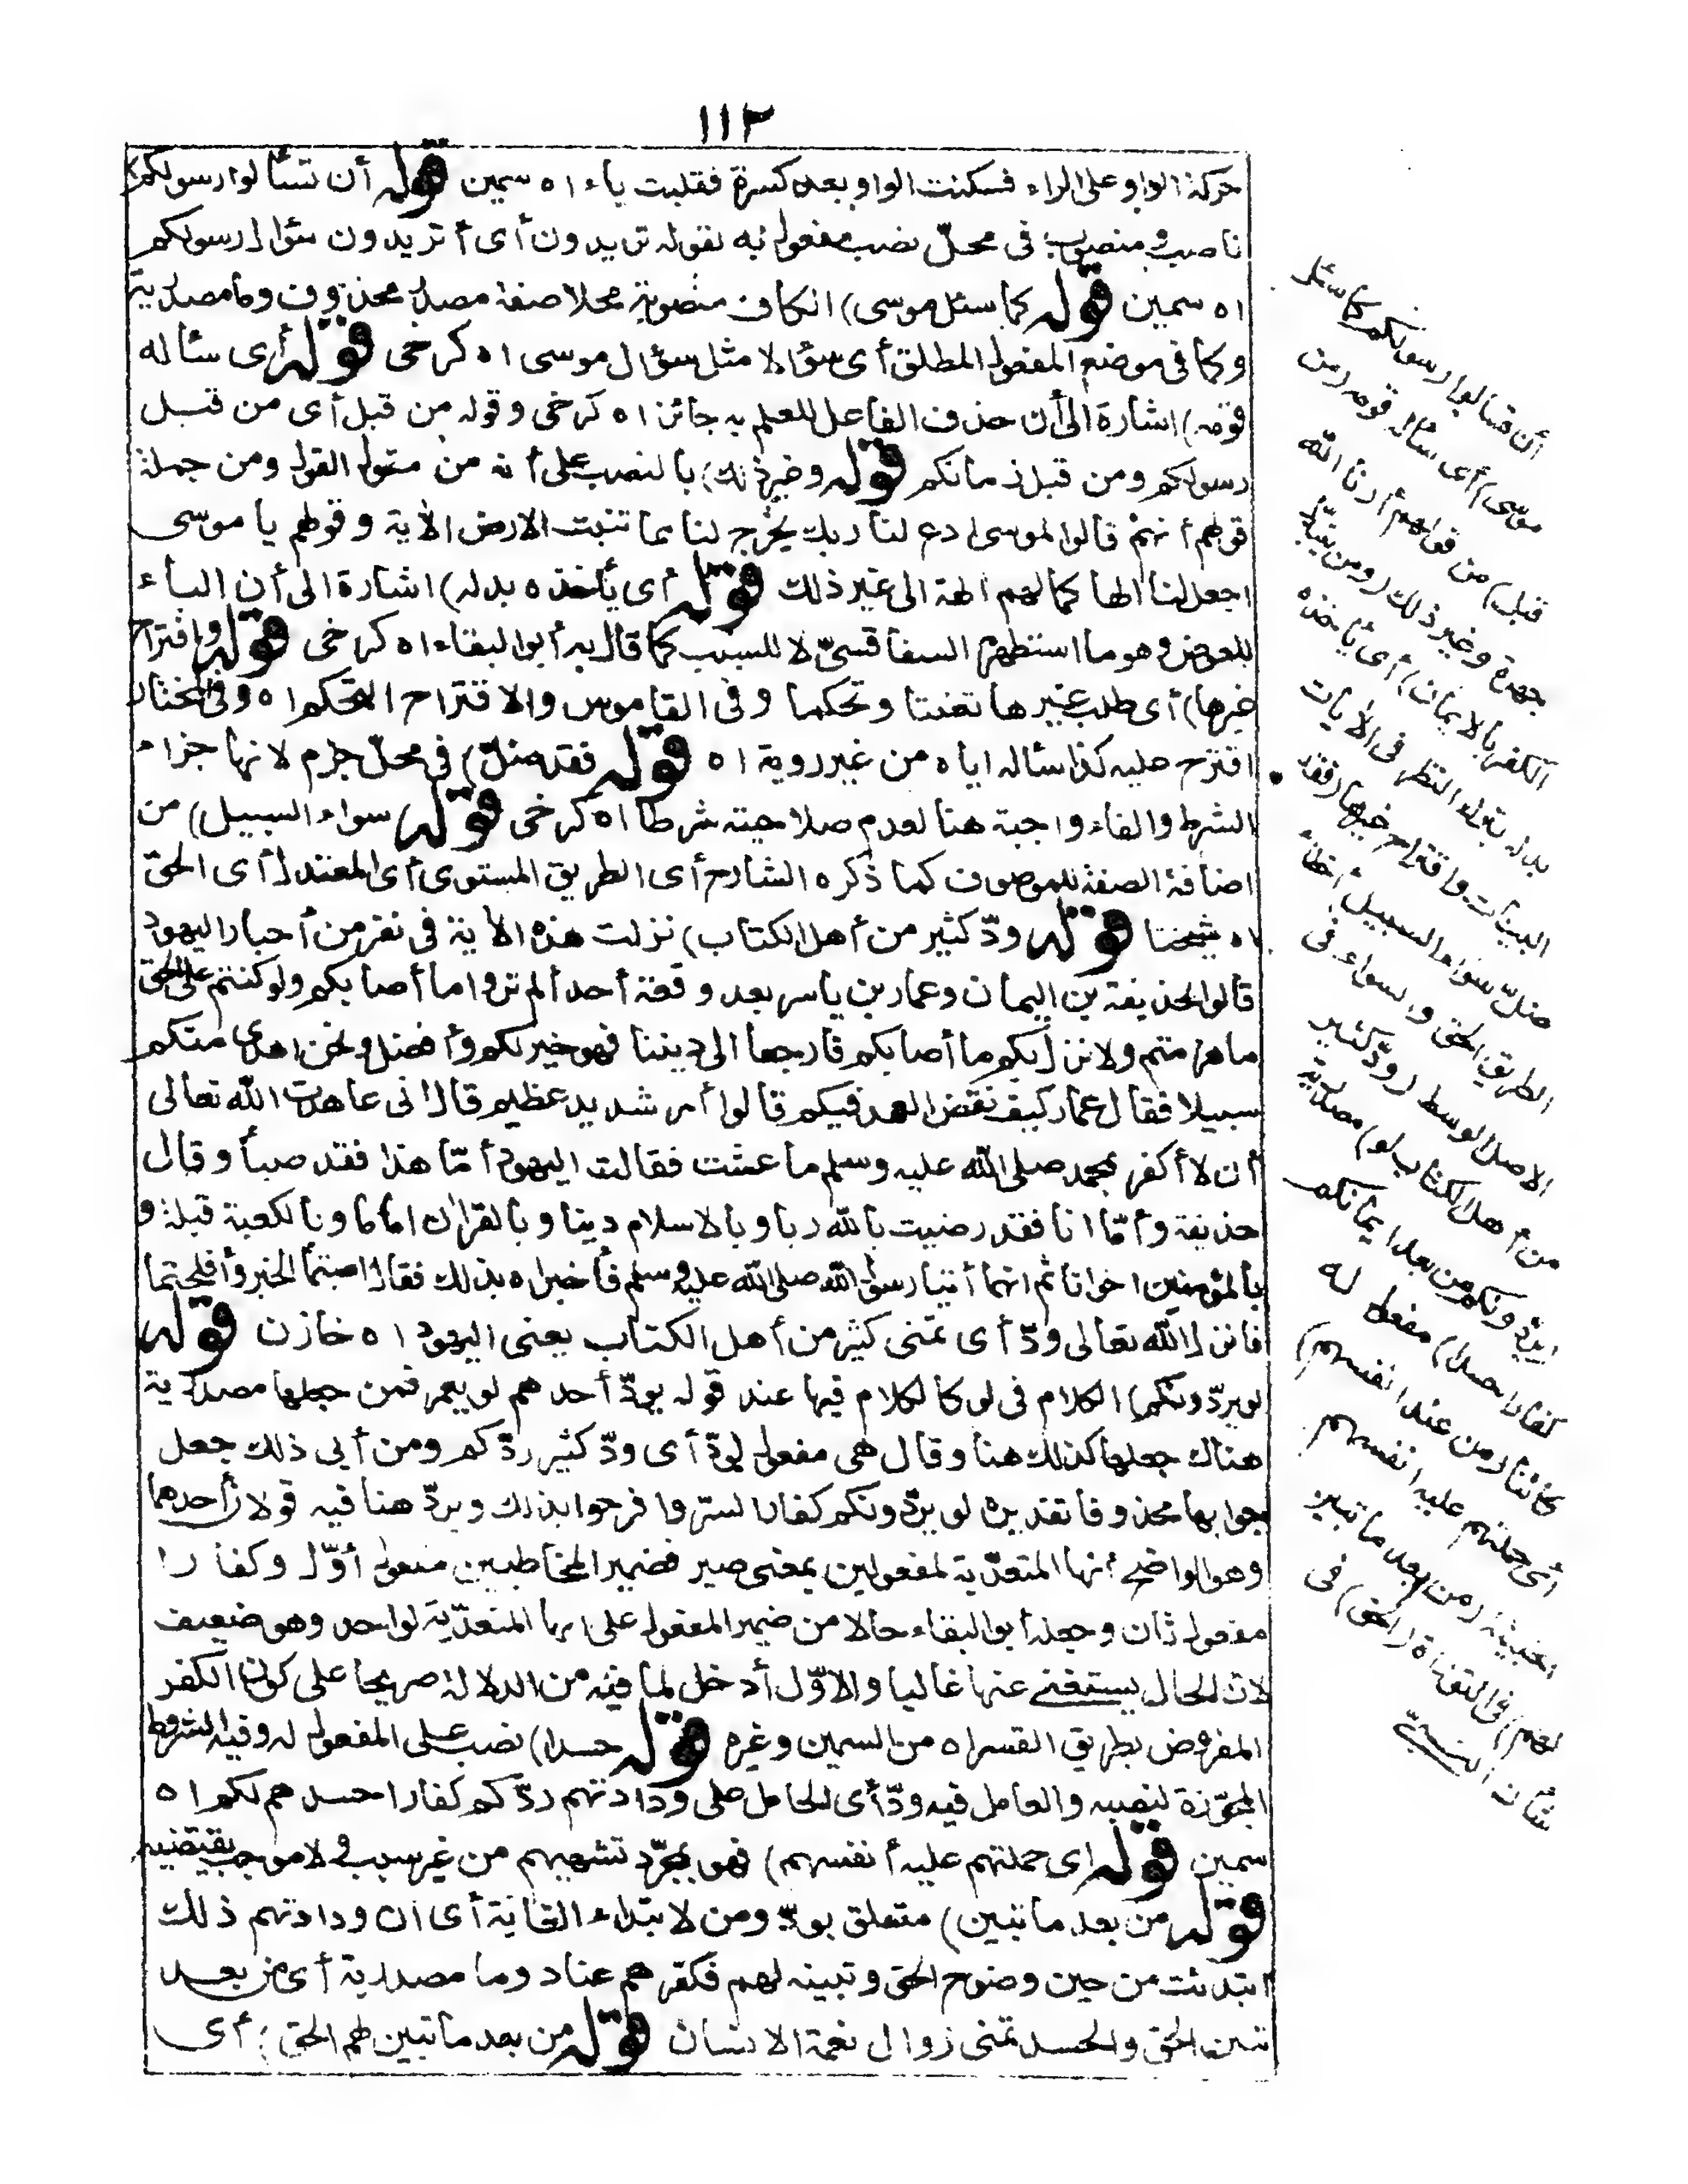 ١١٢
حركة الواو على الراء فسكنت الواو بعد كسرة فقلبت ياء اه سمين قوله أن تسألوا رسولكم)
ناصب ومنصوب في محلّ نصب مفعول به لقوله تريدون أى أتريدون سؤال رسولكم
اه سمين قوله كما سئل موسى) الكاف منصوبة محلا صفة مصدر محذوف وما مصدرية
وكما في موضع المفعول المطلق أى سؤالا مثل سؤال موسى اه كرخى قوله أى سأله
قومه) اشارة الى أن حذف الفاعل للعلم به جائز اه كرخى وقوله من قبل أى من قبل
رسولكم ومن قبل زمانكم قوله وغير ذلك) بالنصب على أنه من مقول القول ومن جملة
قولهم أنهم قالوا لموسى ادع لنا ربك يخرج لنا مما تنبت الارض الآية وقولهم يا موسى
اجعل لنا الها كما لهم الهة الى غير ذلك قوله أى يأخذه بدله) اشارة الى أن الباء
للعوض وهو ما استظهره السفاقسىّ لا للسبب كما قال به أبو البقاء اه كرخى قوله واقتراح
غيرها) أى طلب غيرها تعنتا وتحكما وفى القاموس والاقتراح التحكم اه وفى المختار
اقترح عليه كذا سأله اياه من غير روية اه قوله فقد ضلّ) فى محلّ جزم لانها جزاء
الشرط والفاء واجبة هنا لعدم صلاحيته شرطا اه كرخى قوله سواء السبيل) من
اضافة الصفة للموصوف كما ذكره الشارح أى الطريق المستوى أى المعتدل أى الحقّ
اه شيخنا قوله ودّ كثير من أهل الكتاب) نزلت هذه الآية فى نفر من أحبار اليهود
قالوا لحذيفة بن اليمان وعمار بن ياسر بعد وقعة أحد ألم تروا ما أصابكم ولو كنتم على الحق
ما هزمتم ولا نزل بكم ما أصابكم فارجعا الى ديننا فهو خير لكم وأفضل ونحن اهدى منكم
سبيلا فقال عمار كيف نقض العهد فيكم قالوا أمر شديد عظيم قال انى عاهدت الله تعالى
أن لا أكفر بمحمد صلى الله عليه وسلم ما عشت فقالت اليهود أمّا هذا فقد صبأ وقال
حذيفة وأمّا انا فقد رضيت بالله ربا وبالاسلام دينا وبالقرآن اماما وبالكعبة قبلة و
بالمؤمنين اخوانا ثم انهما أتيا رسول الله صلى الله عليه وسلم فأخبراه بذلك فقال اصبتما الخير وأفلحتما
فانزل الله تعالى ودّ أى تمنى كثير من أهل الكتاب يعنى اليهود اه خازن قوله
لو يردّونكم) الكلام فى لو كالكلام فيها عند قوله يودّ أحدهم لو يعمر فمن جعلها مصدرية
هناك جعلها كذلك هنا وقال هى مفعول ليودّ أى ودّ كثير ردّكم ومن أبى ذلك جعل
جوابها محذوفا تقديره لو يردّونكم كفارا لسرّوا فرحوا بذلك ويردّ هنا فيه قولان أحدهما
وهو الواضح أنها المتعدّية لمفعولين بمعنى صير فضمير المخاطبين مفعول أوّل وكفارا
مفعول ثان وجعله أبو البقاء حالا من ضمير المفعول على انها المتعدّية لواحد وهو ضعيف
لان الحال يستغنى عنها غالبا والاوّل أدخل لما فيه من الدلالة صريحا على كون الكفر
المفروض بطريق القسر اه من السمين وغيره قوله حسدا) نصب على المفعول له وفيه الشروط
المجوّزة لنصبه والعامل فيه ودّ أى الحامل على ودادتهم ردّكم كفارا حسدهم لكم اه
سمين قوله اى حملتهم عليه أنفسهم) فهو بمجرّد تشهيهم من غير سبب ولا موجب يقتضيه
قوله من بعد ما تبين) متعلق بودّ ومن لابتداء الغاية أى ان ودادتهم ذلك
ابتدئت من حين وضوح الحق وتبينه لهم فكفرهم عناد وما مصدرية أى من بعد
تبين الحق والحسد تمنى زوال نعمة الانسان قوله من بعد ما تبين لهم الحق) أى
أن تسألوا رسولكم كما سئل
موسى) أى سأله قومه (من
قبل) من قولهم أرنا الله
جهرة وغير ذلك (ومن يتبدّل
الكفر بالايمان) أى يأخذه
بدله بترك النظر فى الآيات
البينات واقتراح غيرها (فقد
ضلّ سواء السبيل) أخطأ
الطريق الحق والسواء فى
الاصل الوسط (ودّ كثير
من أهل الكتاب لو) مصدرية
(يردّونكم من بعد ايمانكم
كفارا حسدا) مفعول له
كائنا (من عند انفسهم)
أى حملتهم عليه انفسهم
الخبيثة (من بعد ما تبين
لهم) فى التوراة (الحق) فى
شأن النبىّ